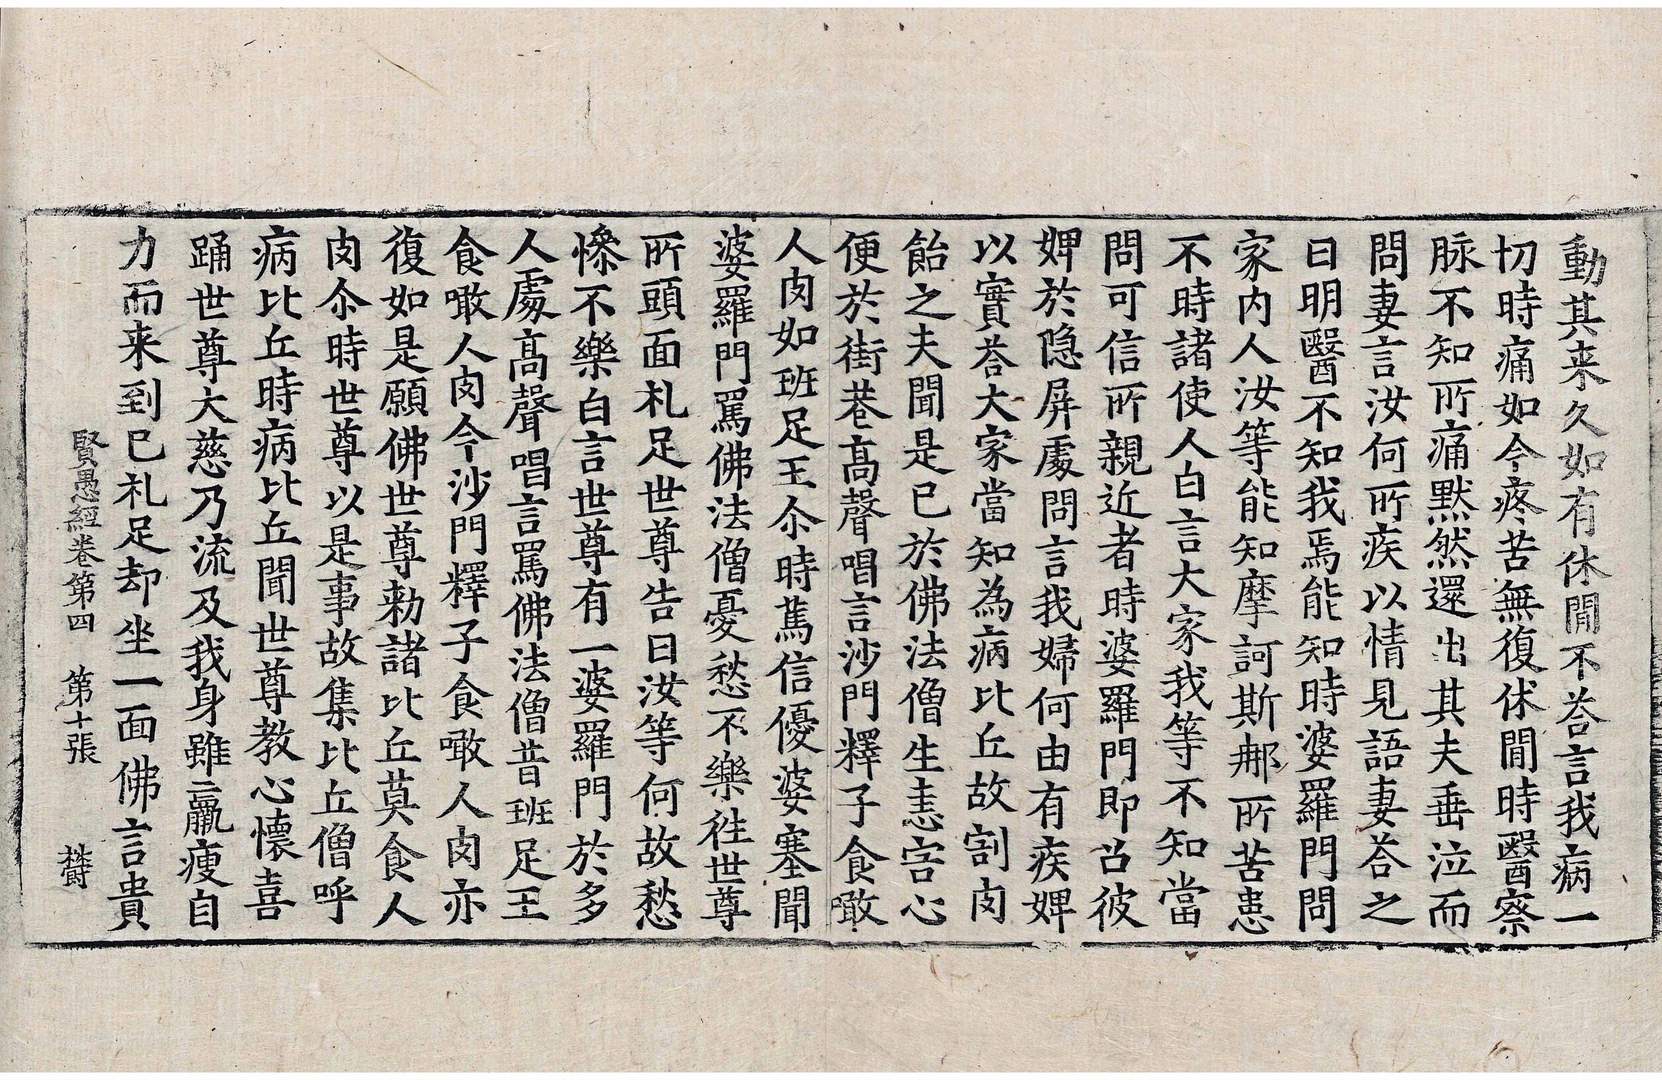 動其来久如有休閒不荅言我病一
切時痛如今疼苦無復休閒時醫察
脉不知所痛黙然還出其夫垂泣而
問妻言汝何所疾以情見語妻荅之
曰明醫不知我焉能知時婆羅門問
家内人汝等能知摩訶斯那所苦患
不時諸使人白言大家我等不知當
問可信所親近者時婆羅門即召彼
婢於隐屏處問言我婦何由有疾婢
以實荅大家當知為病比丘故割肉
飴之夫聞是已於佛法僧生恚害心
便於街巷髙聲唱言沙門釋子食噉
人肉如班足王尒時篤信優婆塞聞
婆羅門罵佛法僧憂愁不樂徃世尊
所頭面礼足世尊告曰汝等何故愁
慘不樂白言世尊有一婆羅門於多
人處髙聲唱言罵佛法僧昔班足王
食噉人肉今沙門釋子食噉人肉亦
復如是願佛世尊勑諸比丘莫食人
肉尒時世尊以是事故集比丘僧呼
病比丘時病比丘聞世尊教心懷喜
踊世尊大慈乃流及我身雖羸瘦自
力而来到已礼足却坐一面佛言貴
賢愚經卷第四　第十張　欝